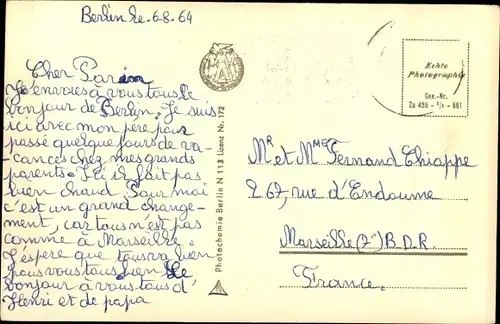 Berlin le-6-8-64
Cher Parin
Je envoies à vous tous le
bonjour de Berlin. Je suis
ici avec mon père pour
passé quelque jours de va-
cances chez mes grands
parents. Ici il fait pas
bien chaud. Pour moi
c'est un grand change-
ment, car tous n'est pas
comme à Marseille.
J'éspere que tous va bien
vous tous bien. Le
bonjour à vous tous d'
Henri et de papa
Photochemie Berlin N 113 Lizenz Nr. 172
Echte
Photographie
Gen.-Nr.
Za 456 - 661
MR et MME Fernand Chiappe
267, rue d'Endoume
Marseille (7e) B.D.R.
France.